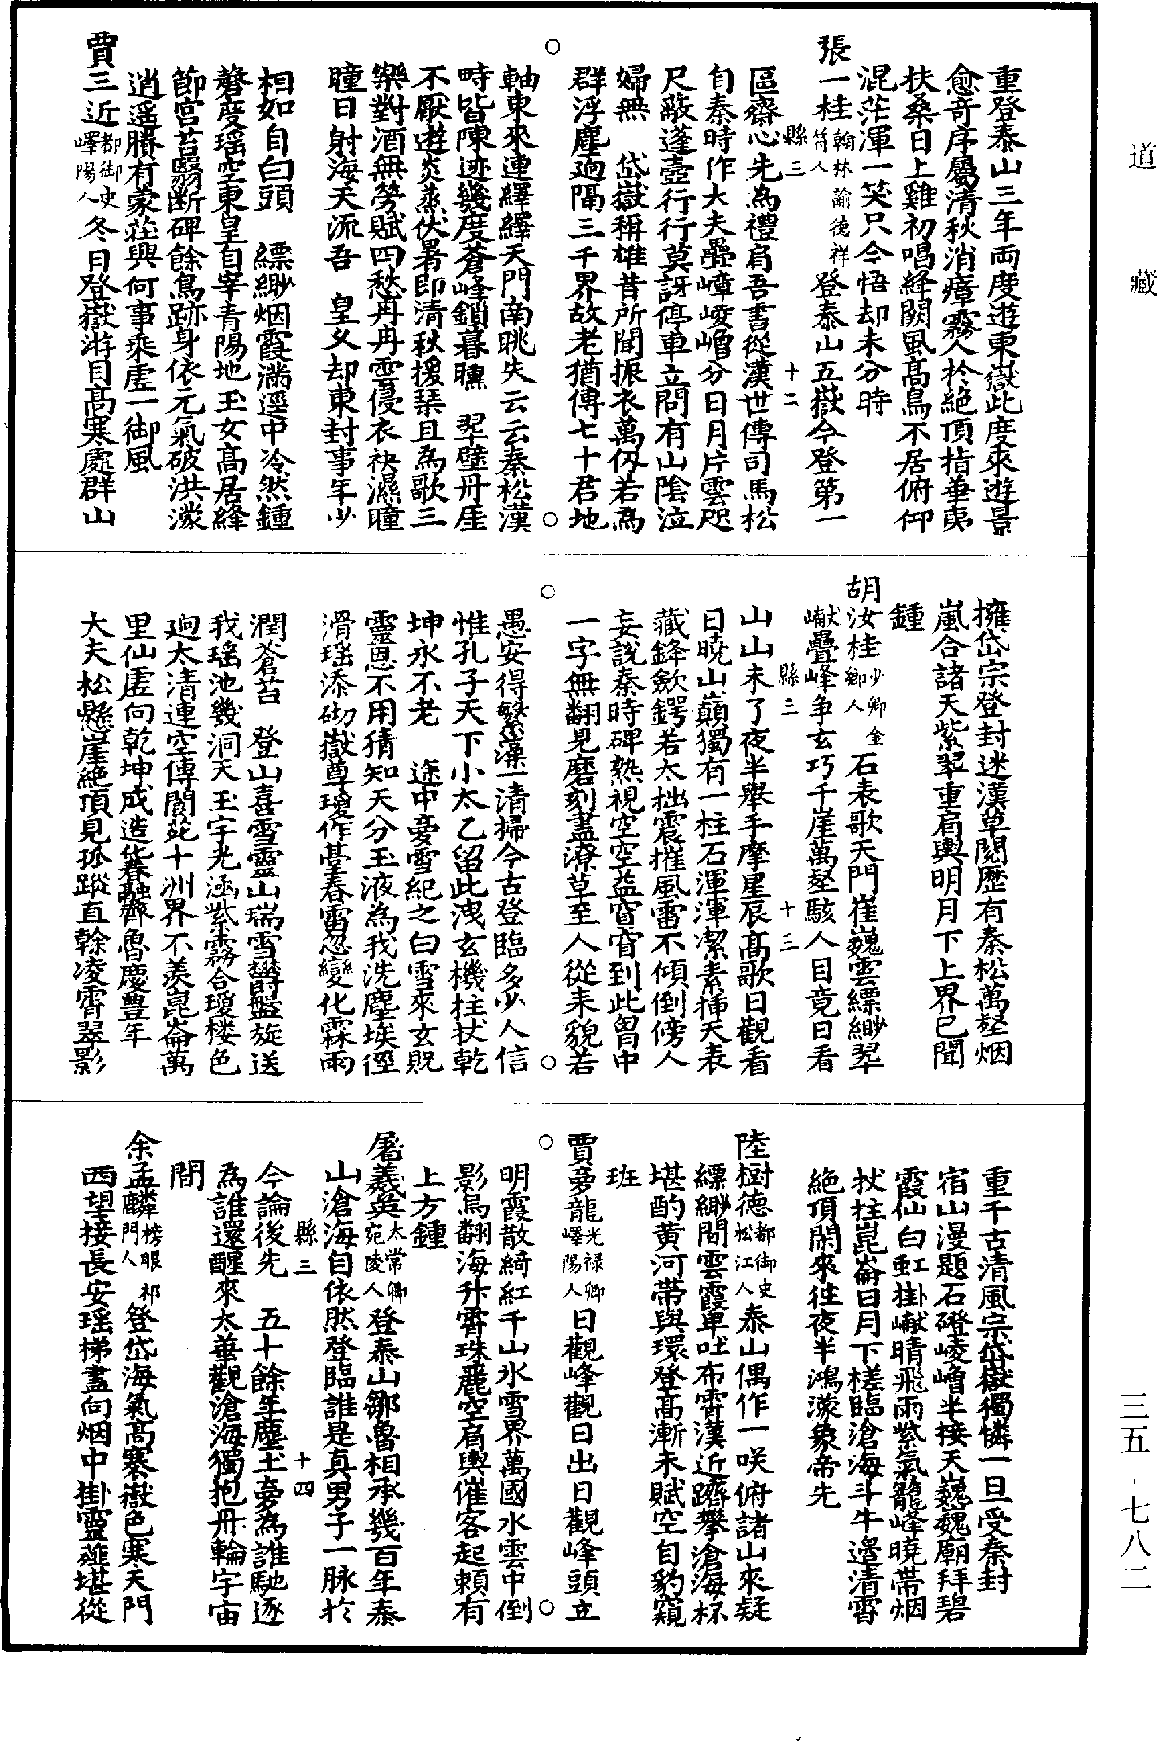 道藏
重登泰山三年両度遊東嶽此度來遊景
愈奇序屬清秋消瘴霧人於絶頂指華夷
扶桑日上雞初唱絳闕風高鳥不居俯仰
混茫渾一笑只今悟却未分時
張一桂翰林諭德祥符人登泰山五嶽今登第一
縣三 十二
區齋心先為禮肩吾書從漢世傳司馬松
自秦時作大夫疊嶂崚嶒分日月片雲咫
尺敵蓬壺行行莫訝停車立問有山陰泣
婦無 岱嶽稱雄昔所聞振衣萬仭若為
群浮塵迥隔三千界故老猶傳七十君地
軸東來連繹繹天門南眺失云云秦松漢
時皆陳迹幾度蒼峰鎖暮曛 翠壁丹厓
不厭遊炎蒸伏暑即清秋援琹且為歌三
樂對酒無勞賦四愁冉冉雲侵衣袂濕曈
曈日射海天流吾 皇久却東封事年少
相如自白頭 縹緲烟霞滿逕中冷然鍾
磬度瑶空東皇自宰青陽地玉女高居絳
節宮苔翳斷碑餘鳥跡身依元氣破洪濛
逍遥勝有蒙莊興何事乘虛一御風
賈三近都御史嶧陽人冬日登嶽游目高寒處群山
擁岱宗登封迷漢草閱歷有秦松萬壑烟
嵐合諸天紫翠重肩輿明月下上界已聞
鍾
胡汝桂少卿金鄉人石表歌天門崔巍雲縹緲翠
巘疊峰争玄巧千崖萬壑駭人目竟日看
縣三 十三
山山未了夜半舉手摩星辰高歌日觀看
日曉山巔獨有一柱石渾渾潔素揷天表
藏鋒歛鍔若太拙震摧風雷不傾倒傍人
妄說秦時碑熟視空空益窅窅到此胷中
一字無翻見磨刻盡潦草至人從来貌若
愚安得繁藻一清掃今古登臨多少人信
惟孔子天下小太乙留此洩玄機拄杖乾
坤永不老 途中憂雪紀之曰雪來玄貺
靈恩不用猜知天分玉液為我洗塵埃徑
滑瑶添砌嶽尊瑷作臺春雷忽變化霖雨
潤蒼苔 登山喜雪靈山瑞雪欝盤旋送
我瑶池幾洞天玉宇光涵紫霧合瓊楼色
迥太清連空傳閬苑十洲界不羨崑崙萬
里仙虛向乾坤成造化春融齊魯慶豊年
大夫松懸崖絶頂見孤蹤直榦凌霄翠影
重千古清風宗岱嶽獨憐一旦受秦封
宿山漫題石磴崚嶒半接天巍巍廟拜碧
霞仙白虹掛巘晴飛雨紫氣籠峰曉帶烟
杖拄崑崙日月下槎臨滄海斗牛邊清霄
絶頂閑來徃夜半鴻濛象帝先
陸樹德都御史松江人泰山偶作一咲俯諸山來疑
縹緲間雲霞單吐布霄漢近躋攀滄海杯
堪酌黄河帶與環登高漸未賦空自豹窺
班
賈夢龍光禄卿嶧陽人日觀峰觀日出日觀峰頭立
明霞散綺紅千山氷雪界萬國水雲中倒
影烏翻海升霄珠麗空肩輿催客起頼有
上方鍾
屠羲英太常卿宛陵人登泰山鄒魯相承幾百年泰
山滄海自依然登臨誰是真男子一脉於
縣三 十四
今論後先 五十餘年塵土夢為誰馳逐
為誰還醒來太華觀滄海獨抱丹輪宇宙
間
余孟麟榜眼祁門人登岱海氣高寒嶽色寒天門
西望接長安瑶梯盡向烟中掛靈蓰堪從
三五-七八二